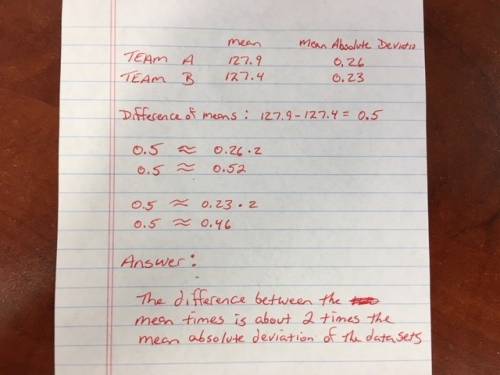 mean Mean Absolute Deviatio
TEAM A 127.9 0.26
TEAM B 127.4 0.23
Difference of means: 127.9-127.4= 0.5
0.5 ≈ 0.26·2
0.5 ≈ 0.52
0.5 ≈ 0.23·2
0.5 ≈ 0.46
Answer:
The difference between the
mean times is about 2 times the
mean absolute deviation of the data sets